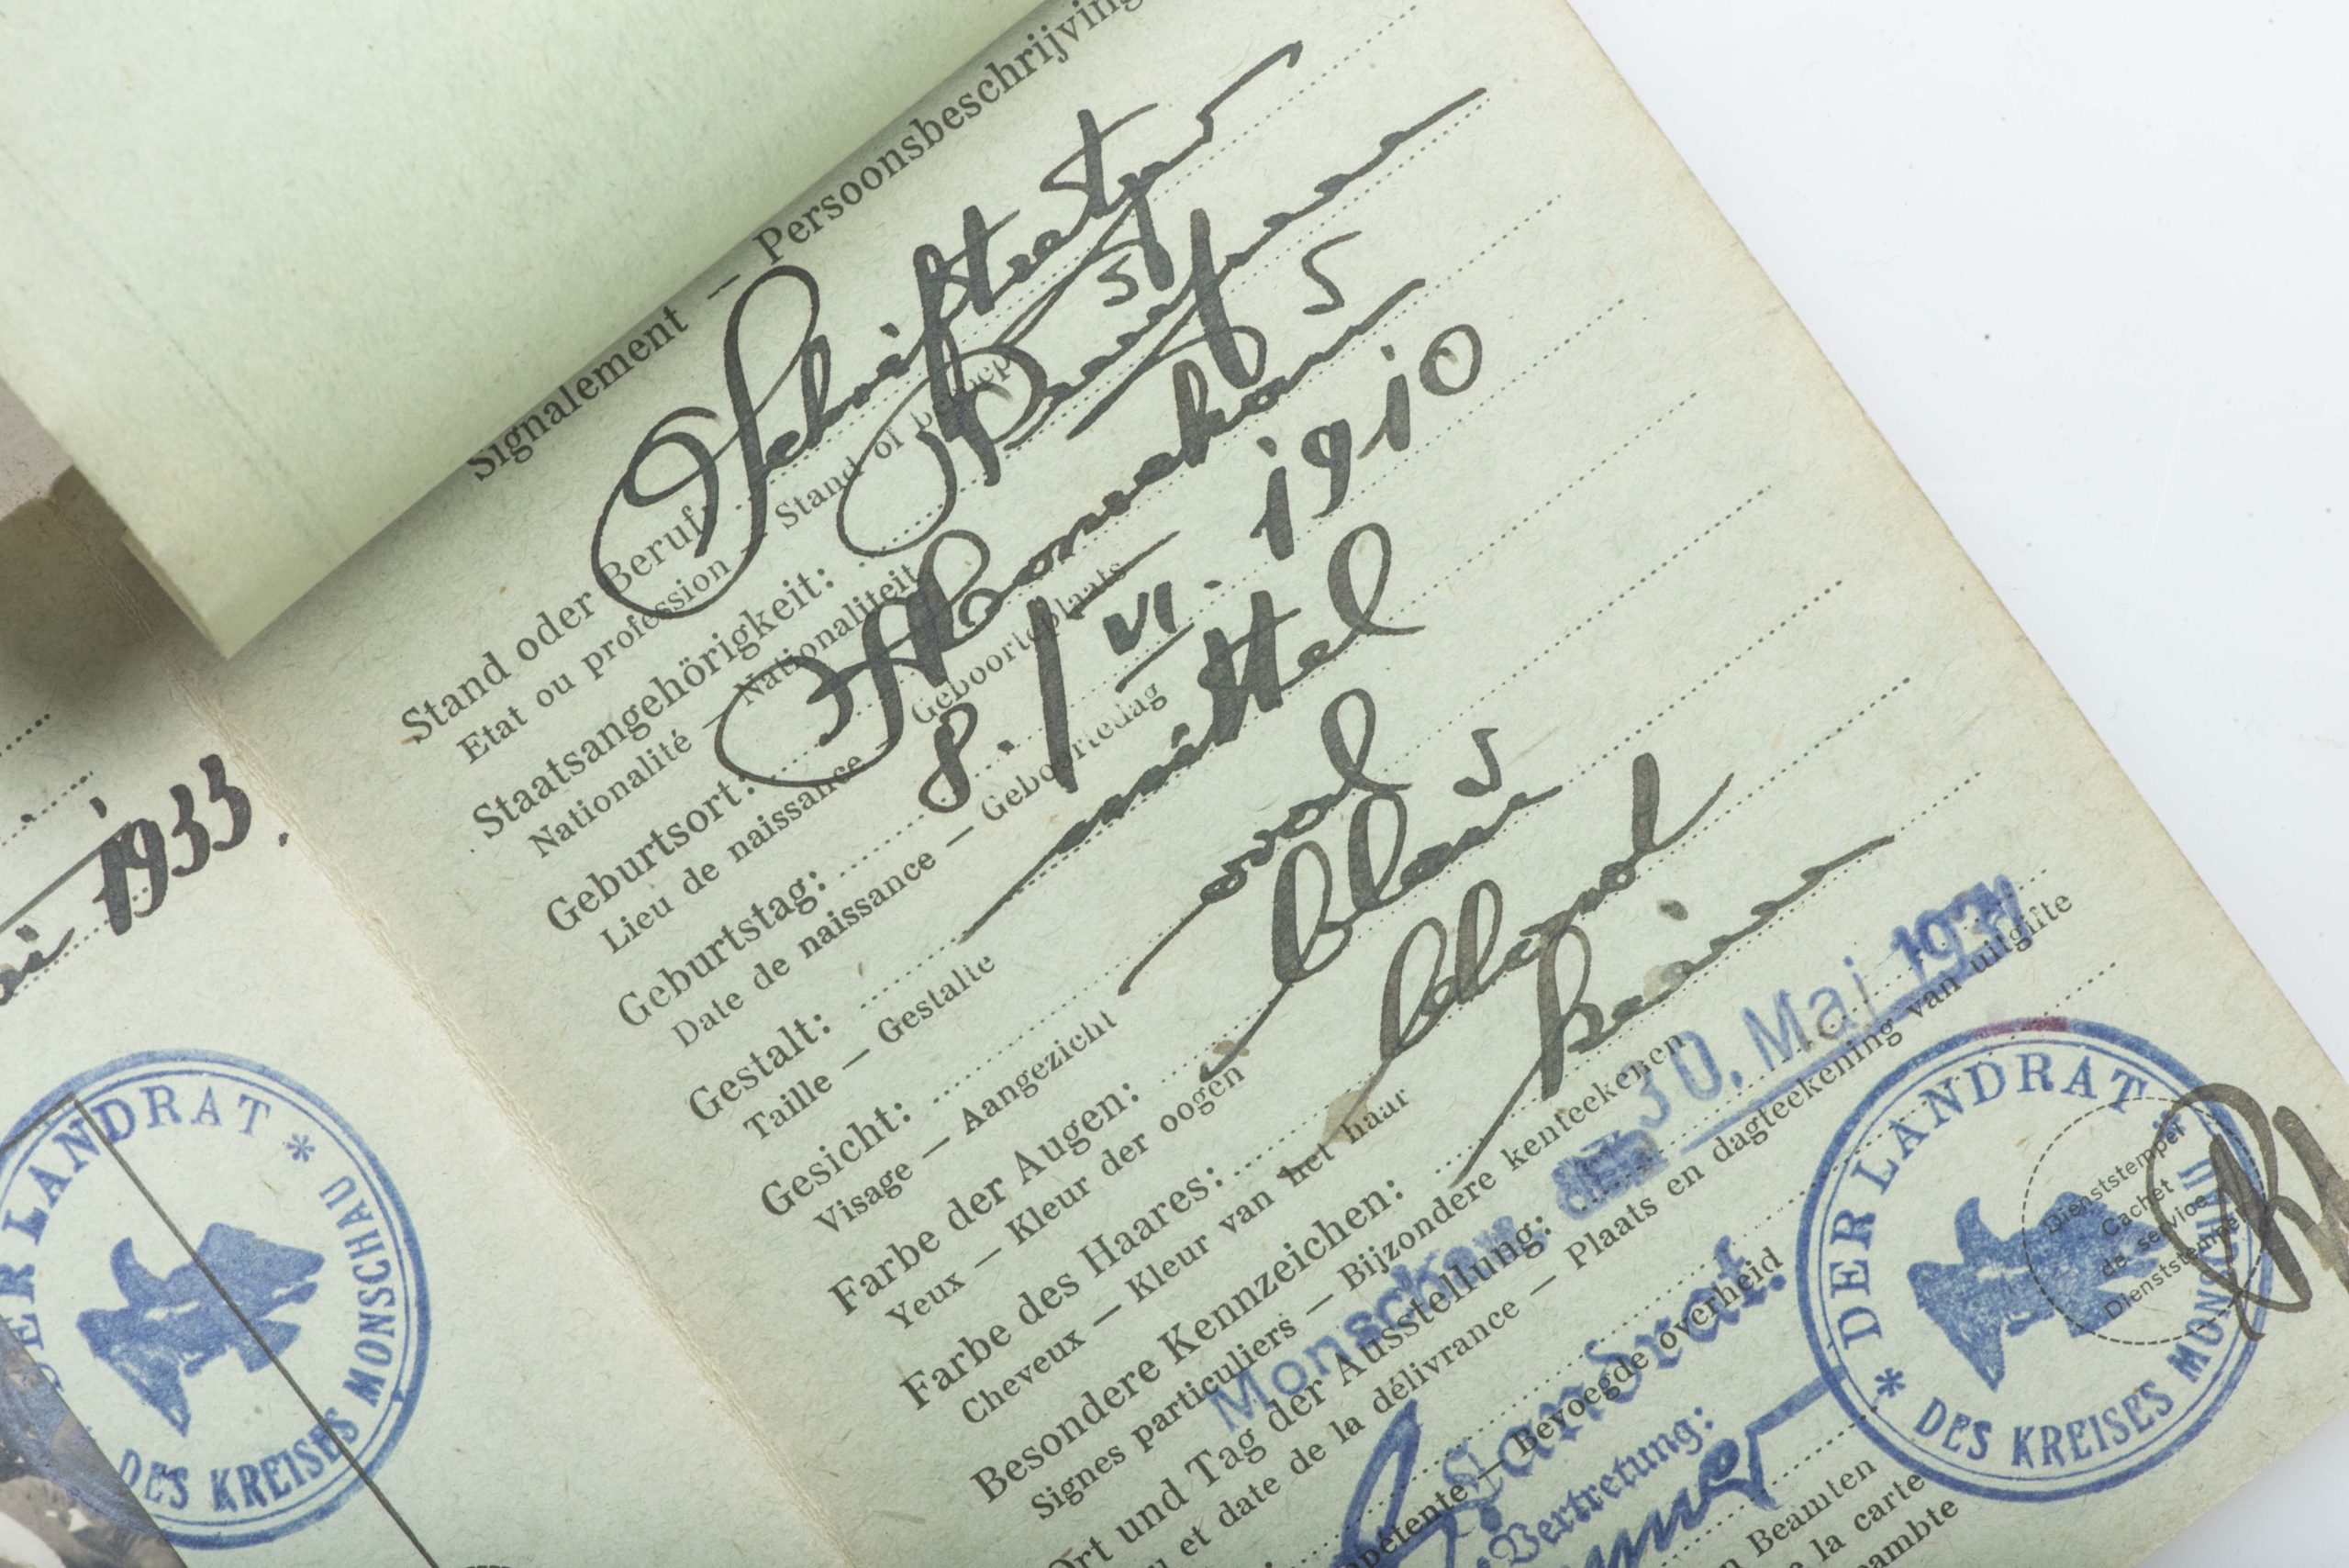 1933.
DER LANDRAT * DES KREISES MONSCHAU
Signalement — Persoonsbeschrijving
Stand oder Beruf: Schriftsetzer
Etat ou profession — Stand of beroep
Staatsangehörigkeit: Preußen
Nationalité — Nationaliteit
Geburtsort: Monschau
Lieu de naissance — Geboorteplaats
Geburtstag: 8. / VI. 1910
Date de naissance — Geboortedag
Gestalt: mittel
Taille — Gestalte
Gesicht: oval
Visage — Aangezicht
Farbe der Augen: blau
Yeux — Kleur der oogen
Farbe des Haares: blond
Cheveux — Kleur van het haar
Besondere Kennzeichen: keine
Signes particuliers — Bijzondere kenteekenen
Ort und Tag der Ausstellung: Monschau den 30. Mai 193
et date de la délivrance — Plaats en dagteekening van uitgifte
Landrat.
pétente — Bevoegde overheid
Vertretung:
n Beamten
e la carte
eambte
DER LANDRAT * DES KREISES MONSCHAU
Dienststempel
Cachet
de service
Dienststempel